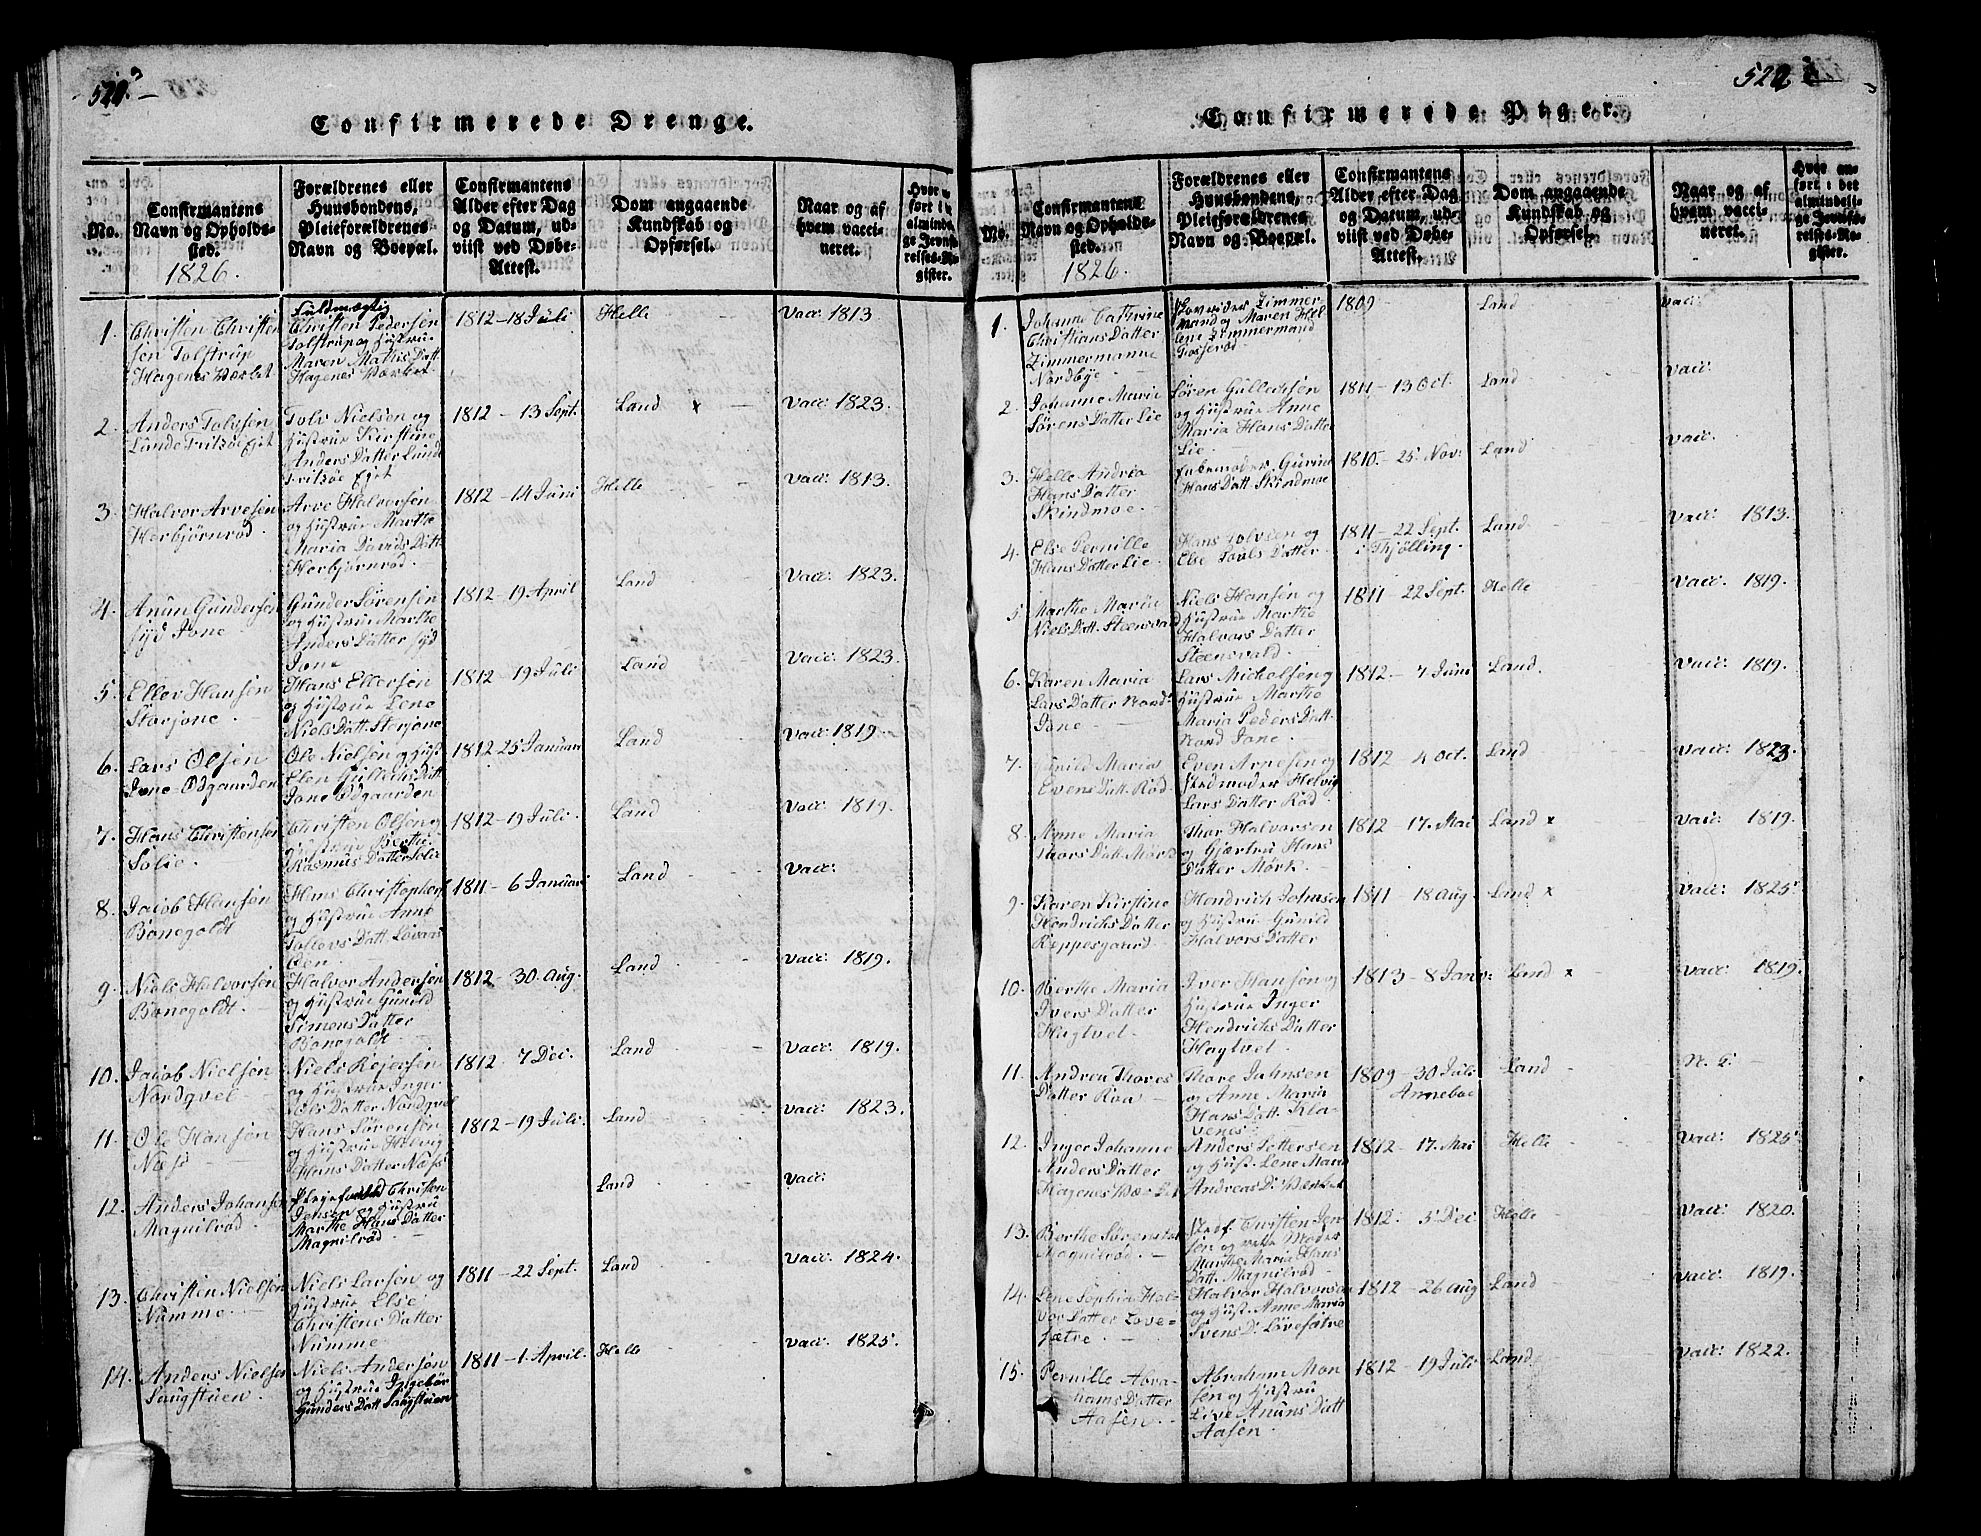 Confirmerede Drenge.
No.
Confirmantens
Navn og Opholds-
sted.
1826.
Forældrenes eller
Huusbondens,
Pleieforældrenes
Navn og Boepæl.
Confirmantens
Alder efter Dag
og Datum, ud-
viist ved Døbe-
Attest.
Dom angaaende
Kundskab og
Opførsel.
Naar og af
hvem vacci-
neret.
1.
Christen Christen
sen Tolstrup
Hagenes Værket
Fuldmægtig
Christen Pedersen
Tolstrup og Hustrue
Maren Mathis Datt.
Hagenes Værket
1812-18 Juli
Helle
Vacc 1813
2.
Anders Tolvsen
Lunde Fritzøe Ejet
Tolv Nielsen og
Hustrue Kirstine
Anders Datter Lunde
Fritsøe Ejet
1812-13 Sept.
Land x
Vacc: 1823.
3.
Halvor Arvesen
Herbjørnrød
Arve Halvorsen
og Hustrue Marthe
Maria Davids Datt.
Herbjørnrød
1812-14 Juni
Helle
Vacc: 1813.
4.
Anun Gundersen
syd Jone
Gunder Sørensen
og Hustrue Marthe
Anders Datter syd
Jone
1812-19 April
Land
Vacc: 1823.
5.
Ellev Hansen
Størjone
Hans Ellevsen
og Hustrue Lene
Niels Datt. Størjone
1812-19 Juli
Land
Vacc: 1823.
6.
Lars Olsen
Jone Odgaarden
Ole Nielsen og Hust
Elen Gullechs Datt.
Jone Odgaarden
1812-25 Januar
Land
Vacc 1819.
7.
Hans Christensen
Solie.
Christen Olsen og
Hustrue Berthe
Rasmus Datter Solie
1812-19 Juli
Land
Vacc: 1819.
8.
Jacob Hansen
Bonegoldt
Hans Christophers
og Hustrue Anne
1811-6 Januar
Land
Vacc:
9.
Niels Halvorsen
Bonegoldt.
Halvor Andersen
og Hustrue Gunild
Simens Datter
Bonegoldt
1812-30 Aug.
Land
Vacc: 1819.
10.
Jacob Nielsen
Nordqvel
Niels Rejersen
og Hustrue Inger
Tols Datter Nordqvel
1812-7 Dec.
Land
Vacc: 1819.
11.
Ole Hansen
Næss
Hans Sørensen
og Hustrue Helvig
Hans Datter Næss
1812-19 Juli.
Land
Vacc: 1823.
12.
Anders Johansen
Magnilrød
Jensen og Hustru
Marthe Hans Datter
Magnilrød
Land
Vacc:
13.
Christen Nielsen
Numme
Niels Larsen og
Hustrue Else
Christens Datter
Numme
1811-22 Sept.
Land
Vacc: 1824.
14.
Anders Nielsen
Saugstuen.
Niels Andersen
og Hustrue Ingebor
Gunders Datt Saugstuen
1811-1. April.
Helle
Vacc: 1825.
Confirmerede Piger.
No.
Confirmantens
Navn og Opholds-
sted.
1826.
Forældrenes eller
Huusbondens,
Pleieforældrenes
Navn og Boepæl.
Confirmantens
Alder efter Dag
og Datum, ud-
viist ved Døbe-
Attest.
Dom angaaende
Kundskab og
Opførsel.
Naar og af
hvem vacci-
neret.
Hvor an-
ført i det
almindeli-
ge Jevnfø-
relses-Re-
gister.
1.
Johanne Cathrine
Christians Datter
Zimmermanne
Nordbye
mand og Maren Hel
ene Zimmermand
1809
Land
Vacc:
2.
Johanne Maria
Sørens Datter Lie
Søren Gullechsen
og Hustrue Anne
Maria Hans Datter
Lie
1811-13 Oct.
Land
Vacc:
3.
Helle Andrea
Hans Datter
Skindmoe
Hans Datt. Skindmoe
1810-25 Nov:
Land
Vacc:
4.
Else Pernille
Hans Datter Lie
Hans Tolvsen og
Else Touls Datter
1811-22 Sept.
i Thjølling.
Land
Vacc: 1813.
5.
Marthe Maria
Niels Datt. Steensvald
Niels Hansen og
Hustrue Marthe
Halvors Datter
Steensvald.
1811-22 Sept.
Helle
Vacc: 1819.
6.
Karen Maria
Lars Datter Nord-
Jone
Lars Michelsen og
Hustrue Marthe
Maria Peders Datt.
Nord Jone.
1812-7 Juni
Land.
Vacc: 1819.
7.
Gunild Maria
Evens Datt. Rød
Even Arnesen og
Stedmoder Helvig
Lars Datter Rød
1812 4 Oct.
Land
Vacc: 1823.
8.
Anne Maria
Thors Datt. Mørk
Thor Halvorsen
og Gjærtru Hans
Datter Mørk.
1812-17. Mai
Land x
Vacc: 1819.
9.
Karen Kirstine
Hendrichs Datter
Reppesgaard
Hendrich Johnsen
og Hustrue Gunild
Halvors Datter
1811 18 Aug.
Land x
Vacc: 1825.
10.
Berthe Maria
Ivers Datter
Hagtvet.
Iver Hansen og
Hustrue Inger
Hendrichs Datter
Hagtvet
1813-8 Janv:
Land x
Vacc 1819.
11.
Andrea Thores
Datter Roa
Thore Johnsen
og Anne Maria
Hans Datt. Kla-
venes:
1809-30 Juli
Land
12.
Inger Johanne
Anders Datter
Hagenes Værket
Anders Pettersen
og Hust. Lene Maria
Andreas D. Værket
1812-17. Mai
Helle
Vacc: 1825.
13.
Berthe Sørensdat
Magnilrød.
Stedf. Christen Jen
sen og rette Moder
Marthe Maria Hans
Datt. Magnilrød
1812. 5 Dec
Helle
Vacc: 1820.
14.
Lene Sophia Hal-
vor Datter Løve-
sætre
Halvor Halvorsen
og Hust. Anne Maria
Svens D. Løvesætre
1812-26 Aug
Land
Vacc: 1819.
15.
Pernille Abra-
hams Datter
Aasen
Abraham Mon-
sen og Hustru
Live Anuns Datt
Aasen
1812-19 Juli
Land
Vacc: 1822.